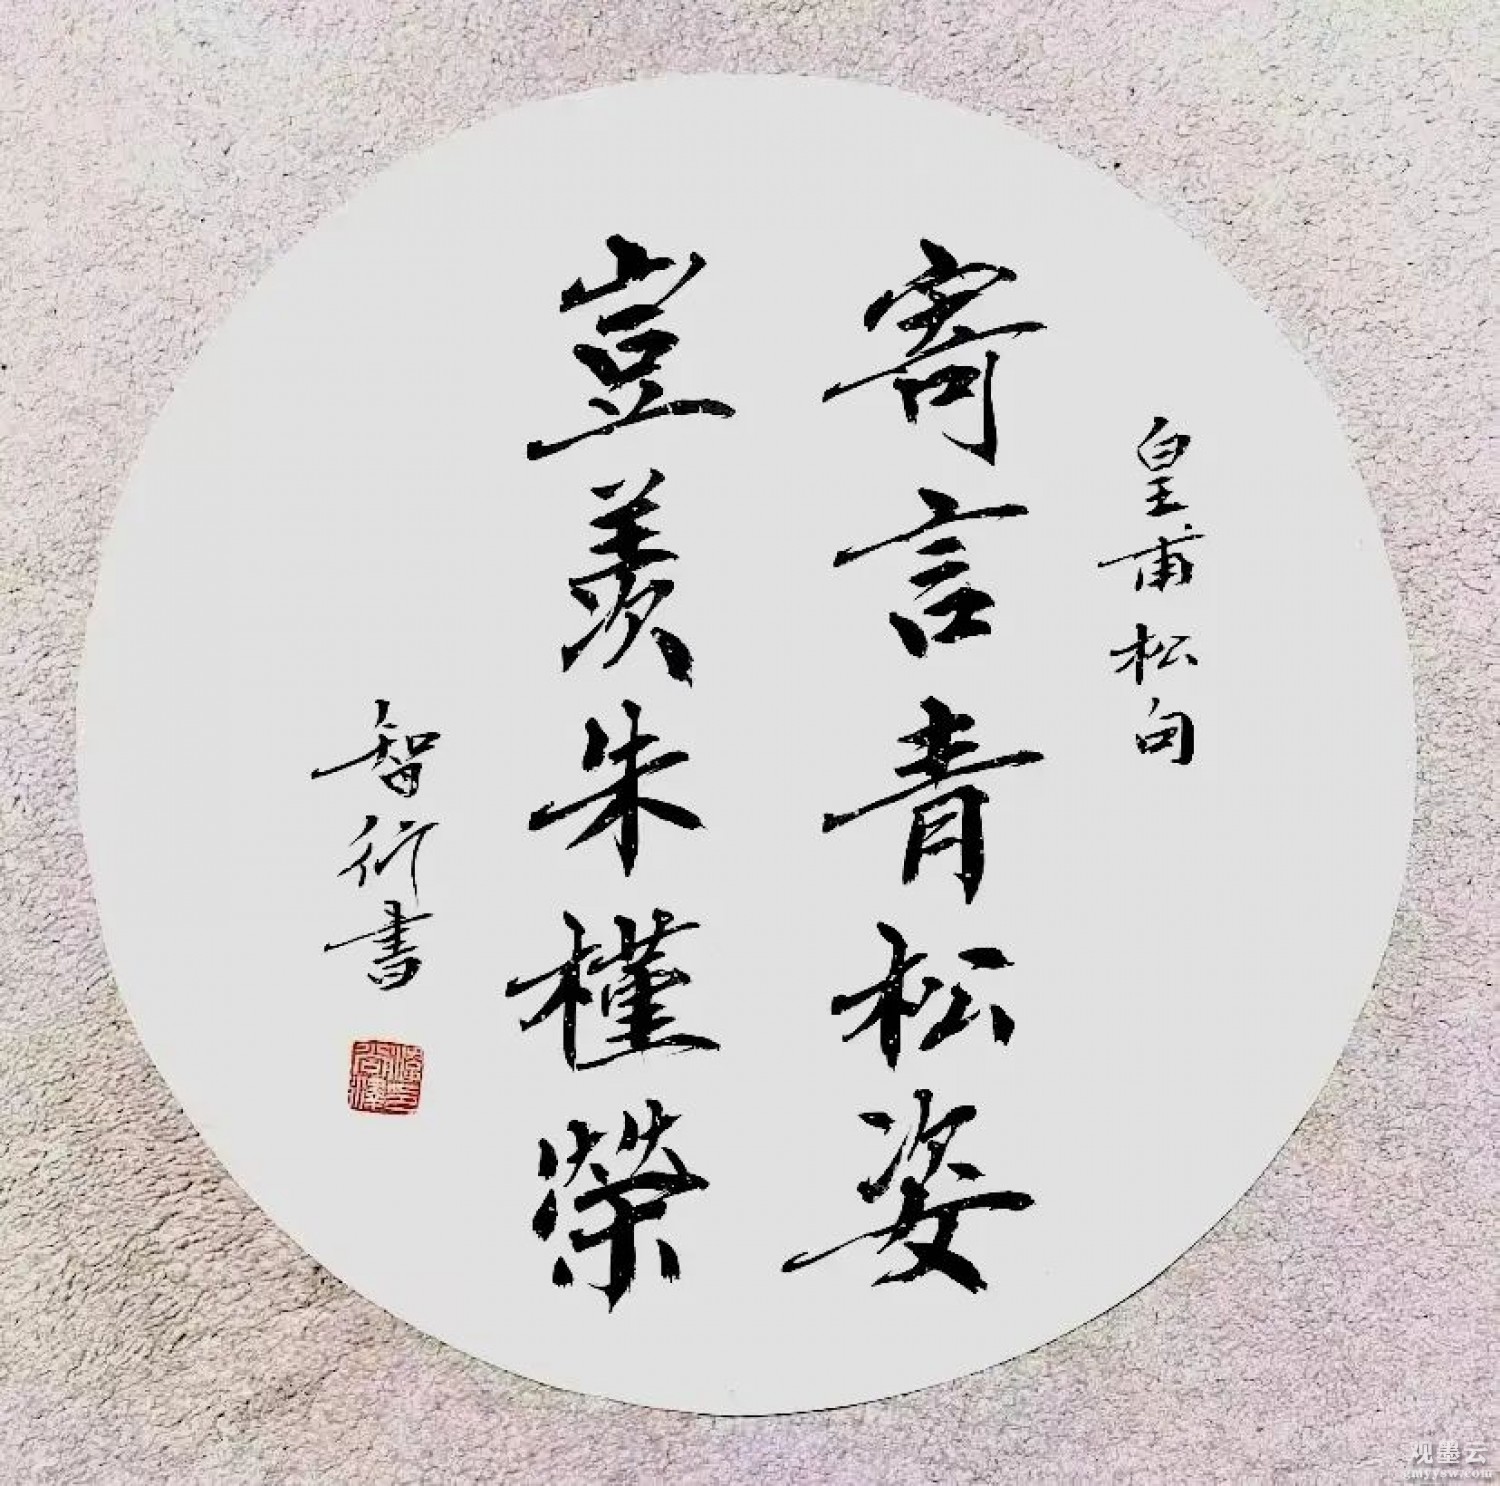 皇甫松句
寄言青松姿
豈羨朱槿榮
智衍書
观墨云
gmyysw.com